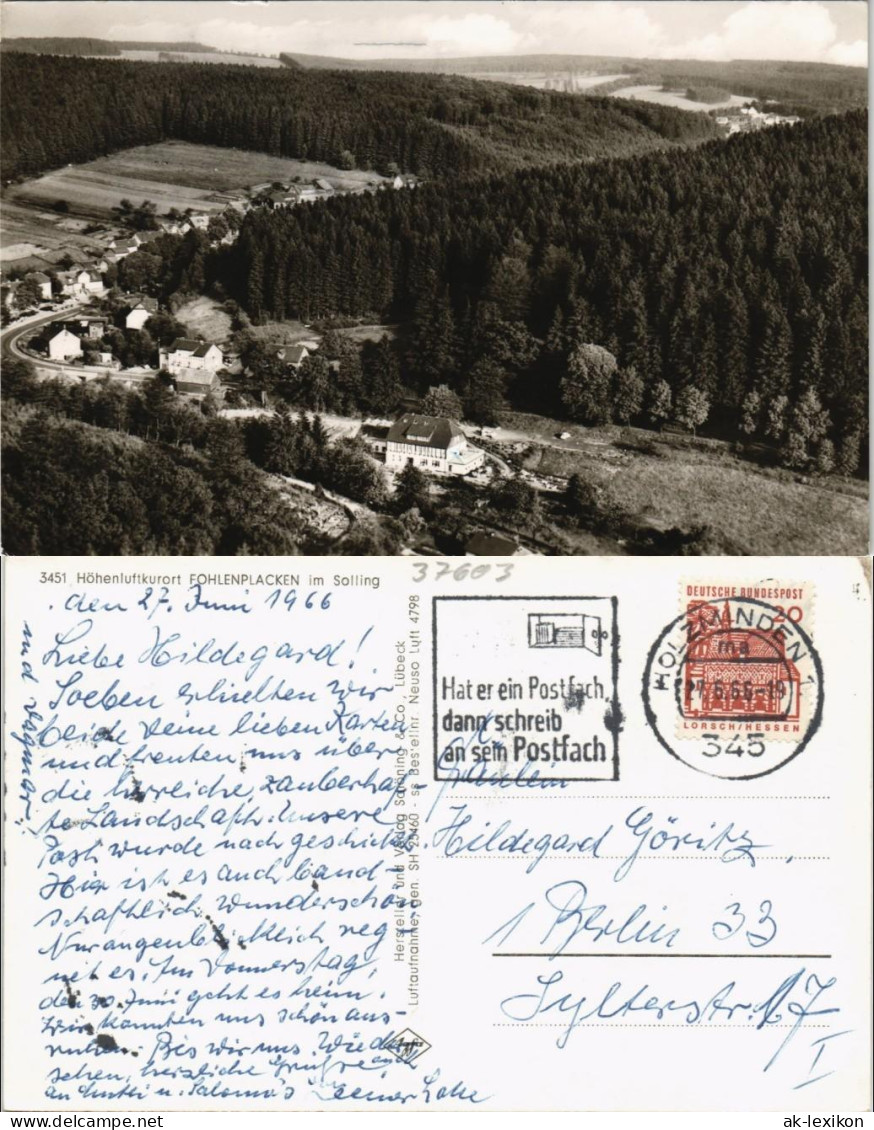 3451 Höhenluftkurort FOHLENPLACKEN im Solling
37603
den 27. Juni 1966
Liebe Hildegard!
Soeben erhielten wir
beide Deine lieben Karten
und freuten uns über
die herrliche, zauberhaf-
te Landschaft. Unsere
Post wurde nachgeschickt.
Hier ist es auch land-
schaftlich wunderschön
Nur augenblicklich reg-
net es. Am Donnerstag,
den 30. Juni geht es heim.
Wir konnten uns schön aus-
ruhen. Bis wir uns wieder
sehen, herzliche Grüße auch
an Mutti u. Salomo's Deine Lotte
und Werner
Hersteller und Verlag Schöning & Co., Lübeck
Luftaufnahme, gen. SH 25460 - ss Bestellnr. Neuso Luft 4798
Hat er ein Postfach,
dann schreib
an sein Postfach
DEUTSCHE BUNDESPOST
20
LORSCH/HESSEN
HOLZMINDEN 1
ma
27.6.66-19
345
Fräulein
Hildegard Göritz,
1 Berlin 33
Sylterstr. 17
I
ak-lexikon